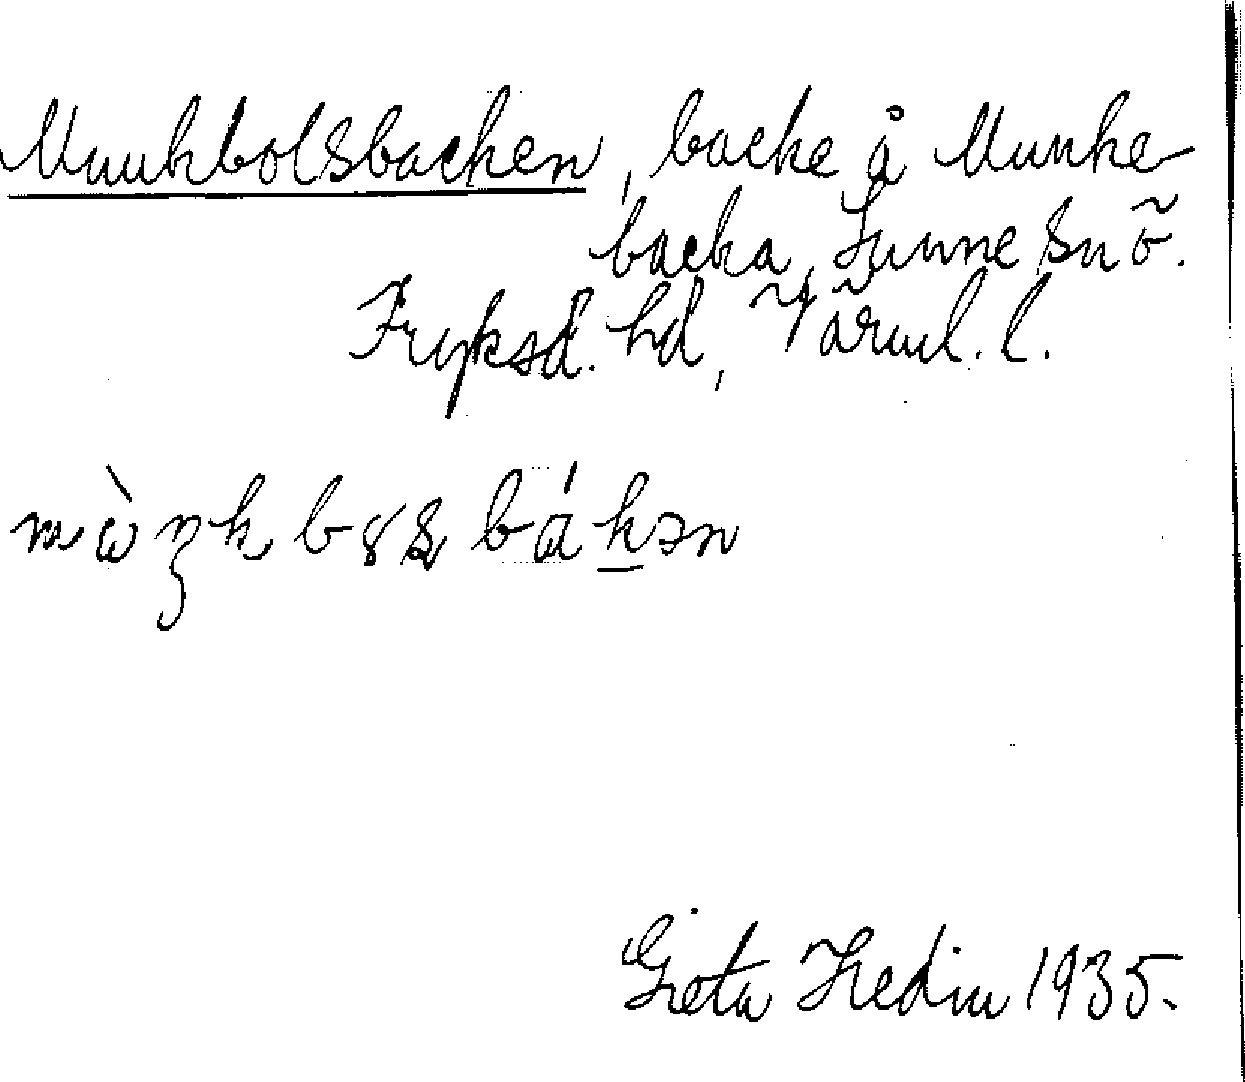 Munkbolsbacken, backe å Munke-
backa, Sunne sn ö.
Fryksd. hd, Värml. l.
mùŋk bɤs bákən
Greta Hedin 1935.